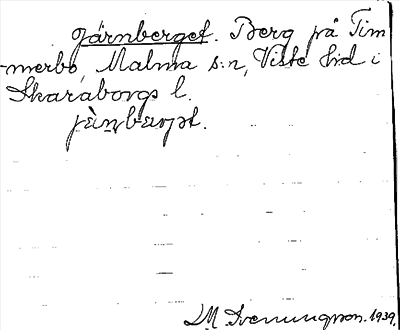 Järnberget. Berg på Tim
-merbo, Malma s:n, Viste hd i
Skaraborgs l.
L M Svenungsson. 1939.